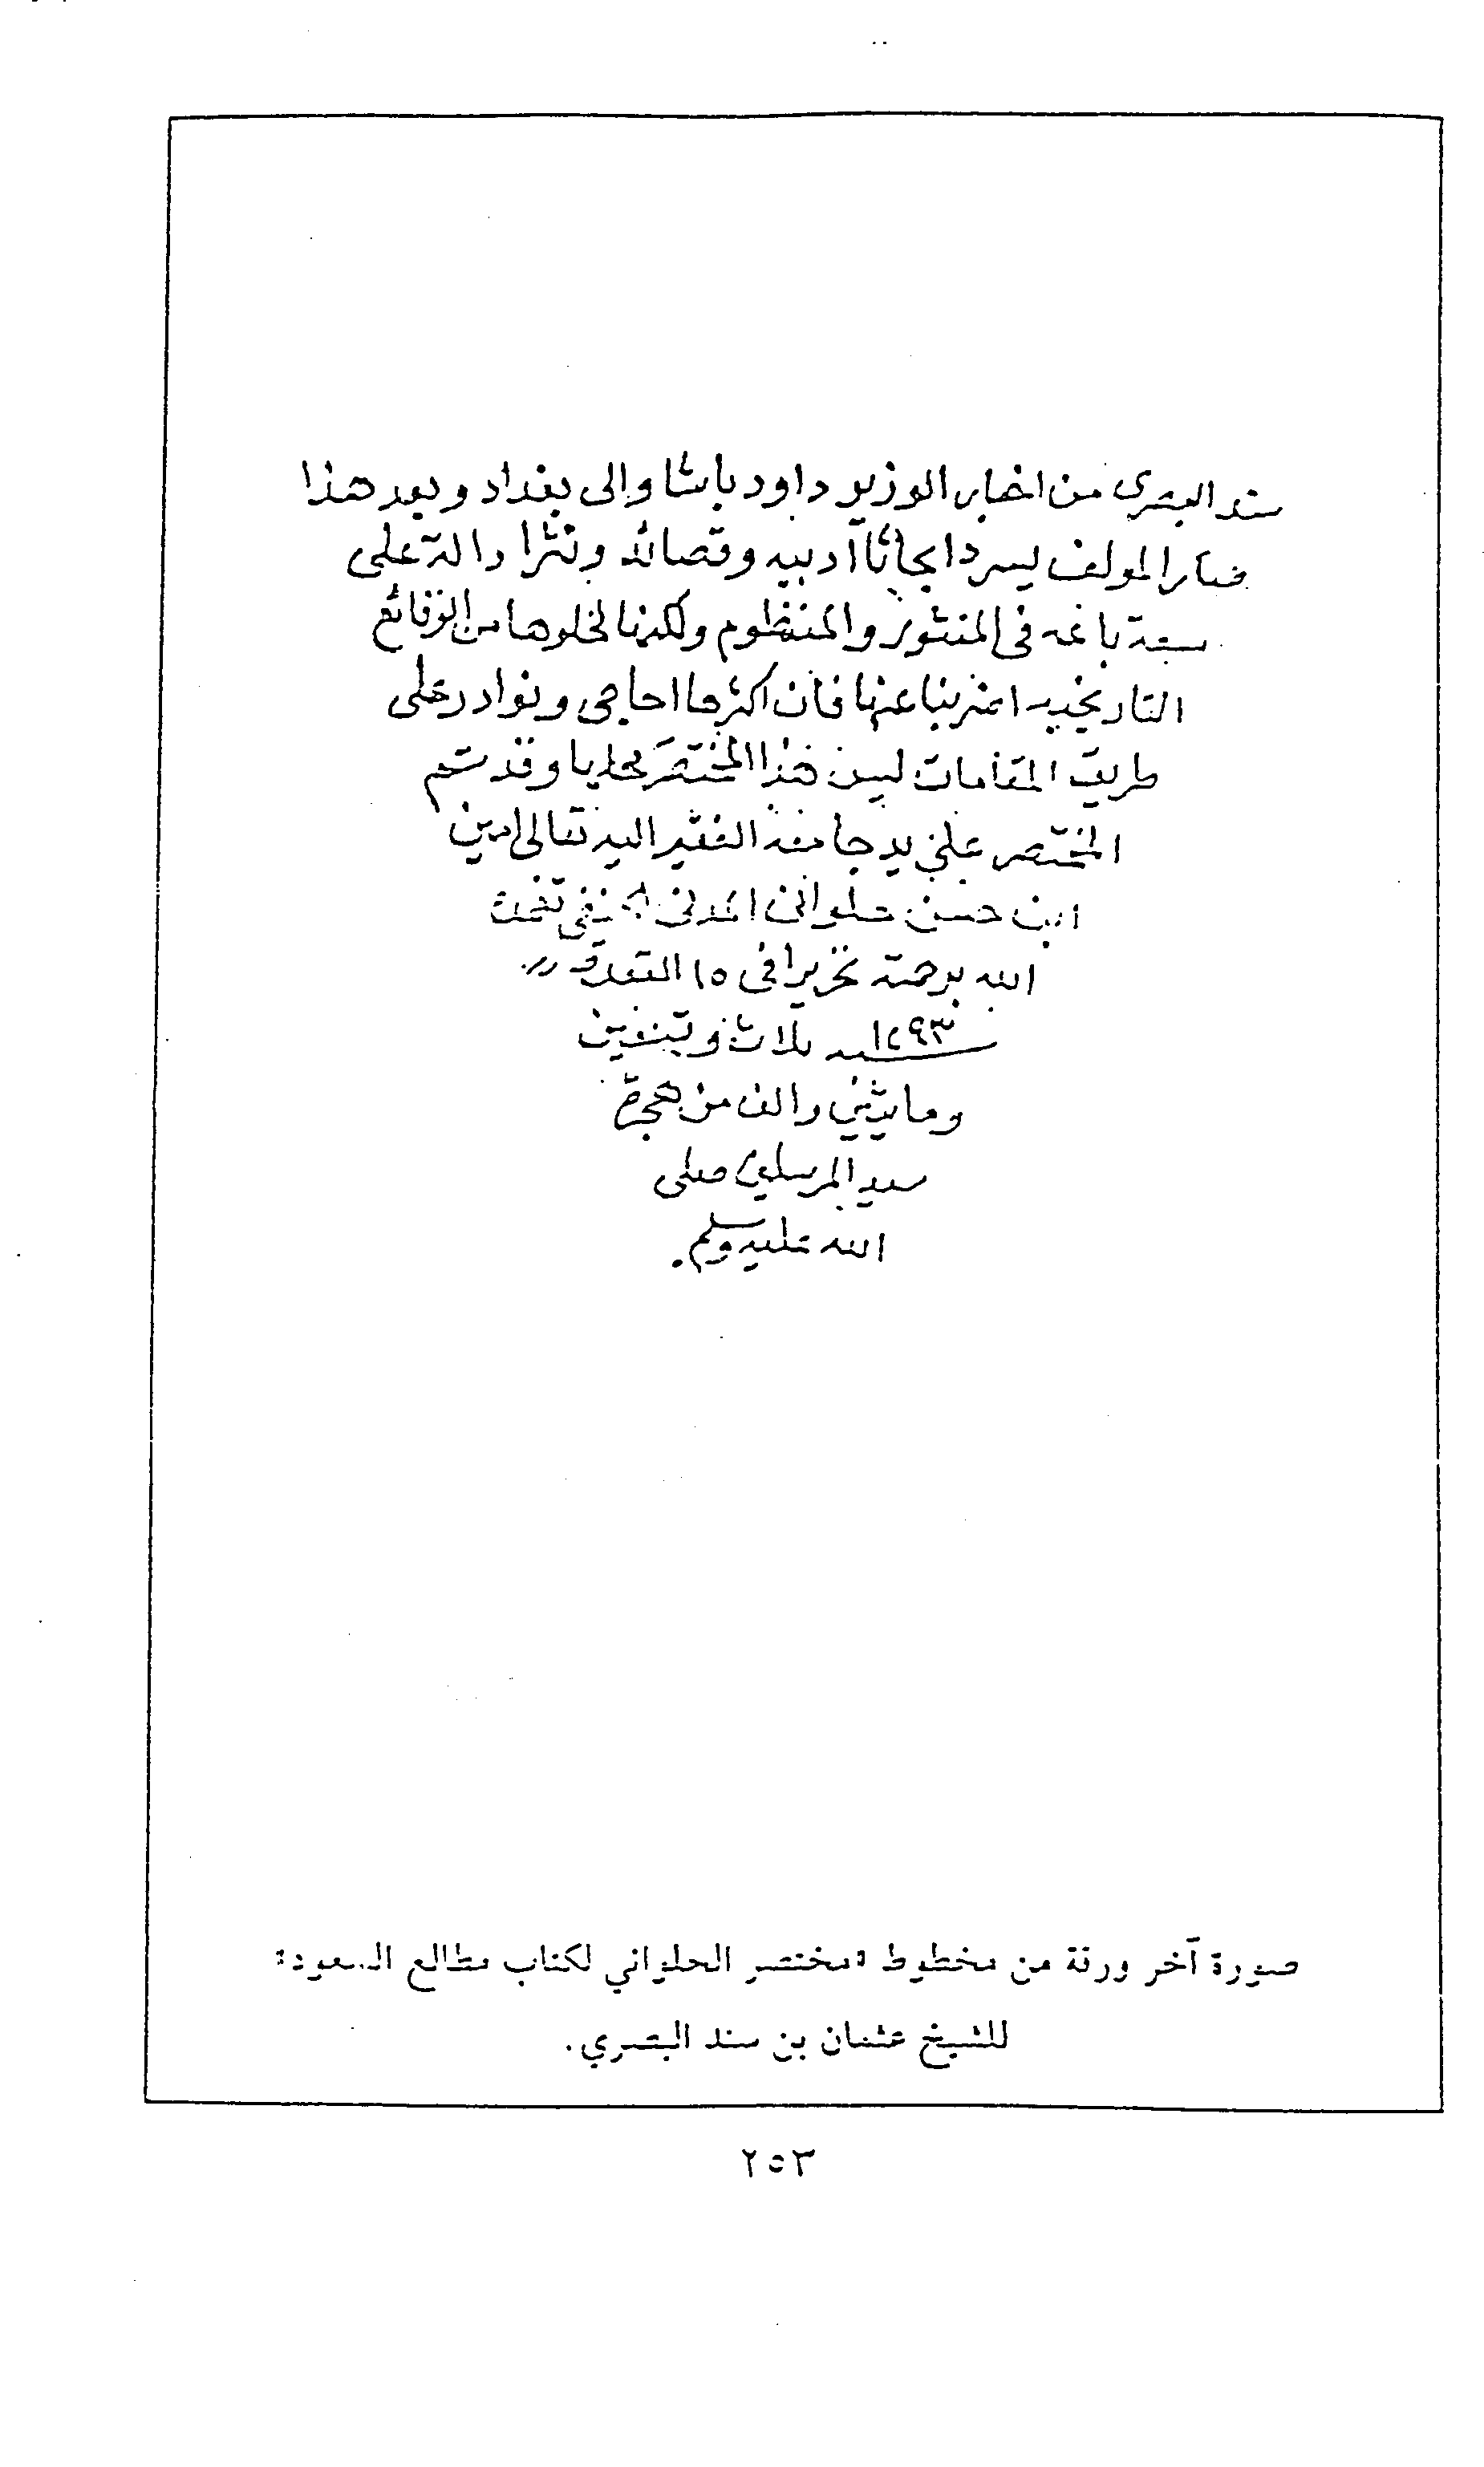 سند البصرى من اخبار الوزير داود باشا والى بغداد وبعد هذا
صار المولف يسرد ابحاثا ادبيه وقصائد ونثرا دالة على
سعة باعه فى المنثور والمنظوم ولكنها لخلوها من الوقائع
التاريخيه اضربنا عنها فان اكثرها احاجى ونوادر على
طريق المقامات ليس هذا المختصر محلها وقد تم
المختصر على يد جامعه الفقير اليه تعالى امين
ابن حسن حلوانى المدنى الحنفى تغمده
الله برحمته تحريرا فى ١٥ القعدة
١٢٩٣ سنه ثلاث وتسعين
ومائتين والف من هجرة
سيد المرسلين صلى
الله عليه وسلم.
صورة آخر ورقة من مخطوط «مختصر الحلواني لكتاب مطالع السعود»
للشيخ عثمان بن سند البصري.
٢٥٣